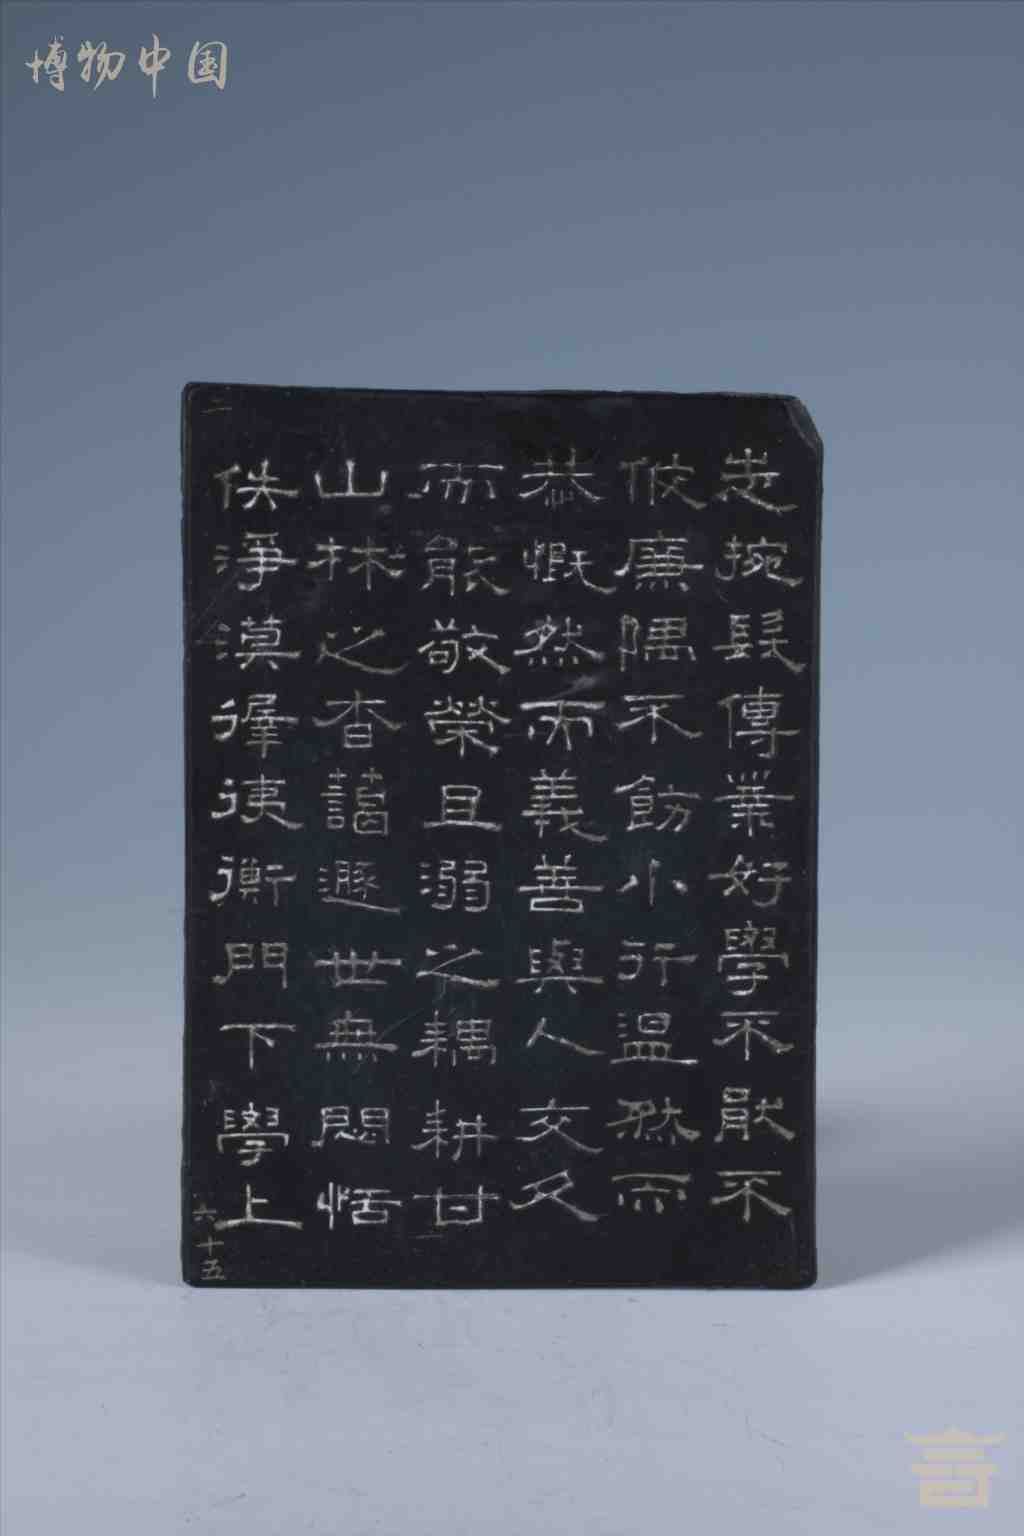 博物中国
志捥髮傳業好學不猒不
攸廉隅不飭小行温然而
恭慨然而義善與人交久
而能敬榮且溺之耦耕甘
山林之杳藹遯世無悶恬
佚淨漠徲𢓡衡門下學上
二
六十五